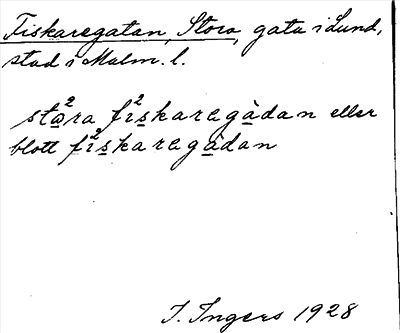 Fiskaregatan, Stora, gata i Lund,
stad i Malm. l.
sta²ra fi²skaregàdan eller
blott fi²skaregàdan
I. Ingers 1928